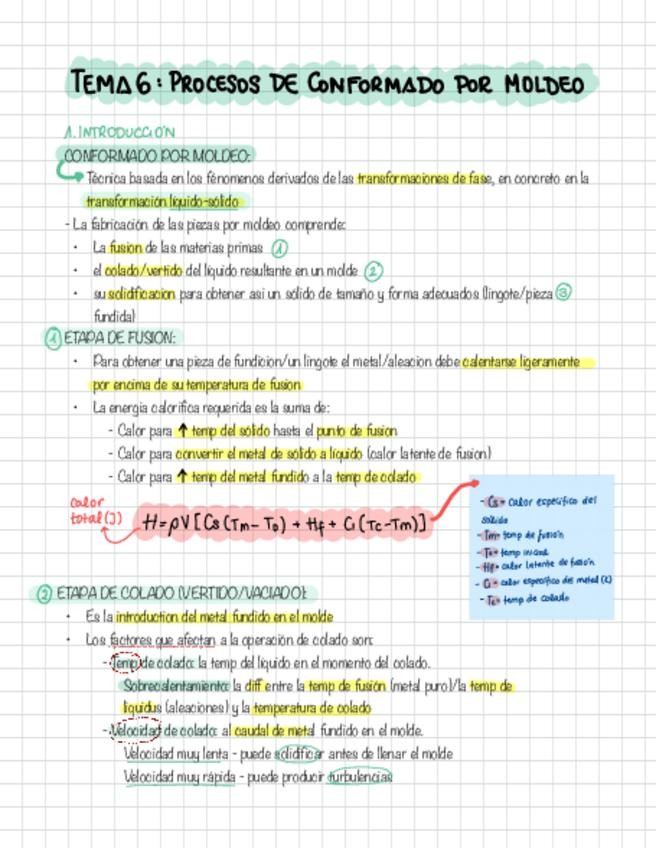 TEMA 6: PROCESOS DE CONFORMADO POR MOLDEO
1. INTRODUCCIÓN
CONFORMADO POR MOLDEO:
Técnica basada en los fénomenos derivados de las transformaciones de fase, en concreto en la
transformación líquido-sólido
- La fabricación de las piezas por moldeo comprende:
• La fusion de las materias primas ①
• el colado/vertido del líquido resultante en un molde ②
• su solidificacion para obtener asi un sólido de tamaño y forma adecuados (lingote/pieza ③
fundida)
① ETAPA DE FUSION:
• Para obtener una pieza de fundicion/un lingote el metal/aleacion debe calentarse ligeramente
por encima de su temperatura de fusion
• La energia calorifica requerida es la suma de:
- Calor para ↑ temp del sólido hasta el punto de fusion
- Calor para convertir el metal de sólido a líquido (calor latente de fusion)
- Calor para ↑ temp del metal fundido a la temp de colado
calor
total (J)
H=ρV[Cs(Tm-To) + Hf + Cl(Tc-Tm)]
- Cs= calor específico del
sólido
- Tm= temp de fusión
- To= temp inicial
- Hf= calor latente de fusión
- Cl= calor específico del metal (l)
- Tc= temp de colado
② ETAPA DE COLADO (VERTIDO/VACIADO):
• Es la introduction del metal fundido en el molde
• Los factores que afectan a la operación de colado son:
- Temp de colado: la temp del líquido en el momento del colado.
Sobrecalentamiento: la diff entre la temp de fusión (metal puro)/la temp de
liquidus (aleaciones) y la temperatura de colado
- Velocidad de colado: al caudal de metal fundido en el molde.
Velocidad muy lenta - puede solidificar antes de llenar el molde
Velocidad muy rápida - puede producir turbulencias